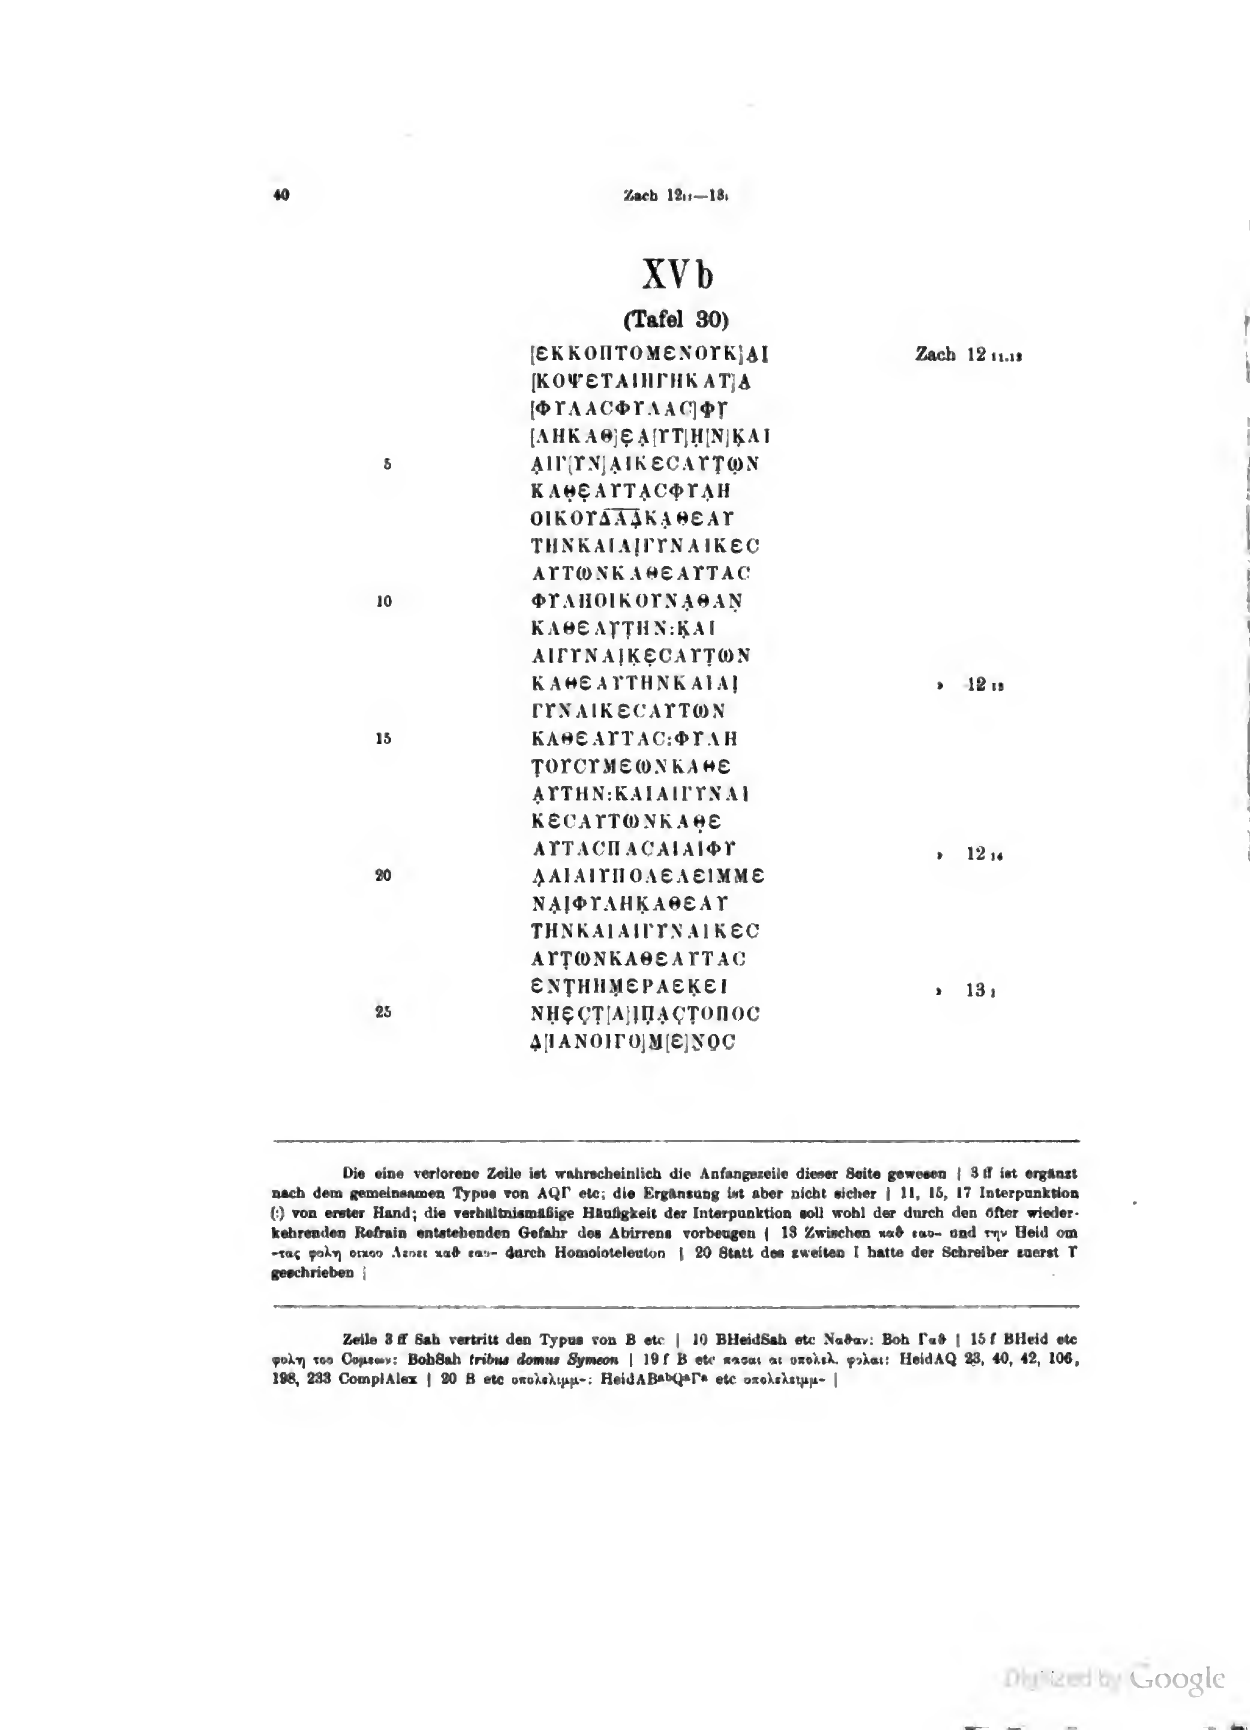 40
Zach 12₁₁—13₁
XV b
(Tafel 30)
[ЄΚΚΟΠΤΟΜЄΝΟΥΚ]Α̣Ι Zach 12 ₁₁.₁₂
[ΚΟΨЄΤΑΙΗΓΗΚΑΤ]Α̣
[ΦΥΛΑCΦΥΛΑC]ΦΥ̣
[ΛΗΚΑΘ]Є̣Α̣[ΥΤ]Η̣[Ν]Κ̣ΑΙ
5 Α̣ΙΓ[ΥΝ]Α̣ΙΚЄCΑΥΤ̣ω̣Ν
ΚΑΘ̣Є̣ΑΥΤΑ̣CΦΥΛ̣Η
ΟΙΚΟΥΔ̅Α̅Δ̣̅ΚΑ̣ΘЄΑΥ
ΤΗΝΚΑΙΑΙ̣ΓΥΝΑΙΚЄC
ΑΥΤωΝΚΑΘЄΑΥΤΑC
10 ΦΥΛΗΟΙΚΟΥΝΑ̣ΘΑΝ̣
ΚΑΘЄΑΥ̣Τ̣ΗΝ:Κ̣ΑΙ
ΑΙΓΥΝΑΙ̣Κ̣Є̣CΑΥΤ̣ωΝ
ΚΑΘЄΑΥΤΗΝΚΑΙΑΙ̣ » 12 ₁₃
ΓΥΝΑΙΚЄCΑΥΤωΝ
15 ΚΑΘЄΑΥΤΑC:ΦΥΛΗ
Τ̣ΟΥCΥΜЄωΝΚΑΘЄ
Α̣ΥΤΗΝ:ΚΑΙΑΙΓΥΝΑΙ
ΚЄCΑΥΤωΝΚΑΘ̣Є
ΑΥΤΑCΠΑCΑΙΑΙΦΥ » 12 ₁₄
20 Λ̣ΑΙΑΙΥΠΟΛЄΛЄΙΜΜЄ
ΝΑ̣Ι̣ΦΥΛΗΚ̣ΑΘЄΑΥ
ΤΗΝΚΑΙΑΙΓΥΝΑΙΚЄC
ΑΥΤ̣ωΝΚΑΘЄΑΥΤΑC
ЄΝΤ̣ΗΗΜ̣ЄΡΑЄΚ̣ЄΙ » 13 ₁
25 ΝΗ̣Є̣C̣Τ̣[Α]Ι̣Π̣Α̣C̣Τ̣ΟΠΟC
Δ̣[ΙΑΝΟΙΓΟ]Μ̣[Є]Ν̣Ο̣C
Die eine verlorene Zeile ist wahrscheinlich die Anfangszeile dieser Seite gewesen | 3 ff ist ergänzt
nach dem gemeinsamen Typus von AQΓ etc; die Ergänzung ist aber nicht sicher | 11, 15, 17 Interpunktion
(:) von erster Hand; die verhältnismäßige Häufigkeit der Interpunktion soll wohl der durch den öfter wieder-
kehrenden Refrain entstehenden Gefahr des Abirrens vorbeugen | 13 Zwischen καθ εαυ- und την Heid om
-τας φυλη οικου Λευει καθ εαυ- durch Homoioteleuton | 20 Statt des zweiten I hatte der Schreiber zuerst Υ
geschrieben |
Zeile 3 ff Sah vertritt den Typus von B etc | 10 BHeidSah etc Ναθαν: Boh Γαδ | 15 f BHeid etc
φυλη του Συμεων: BohSah tribus domus Symeon | 19 f B etc πασαι αι υπολελ. φυλαι: HeidAQ 23, 40, 42, 106,
198, 233 ComplAlex | 20 B etc υπολελιμμ-: HeidABᵃᵇQᵃΓᵃ etc υπολελειμμ- |
Digitized by Google